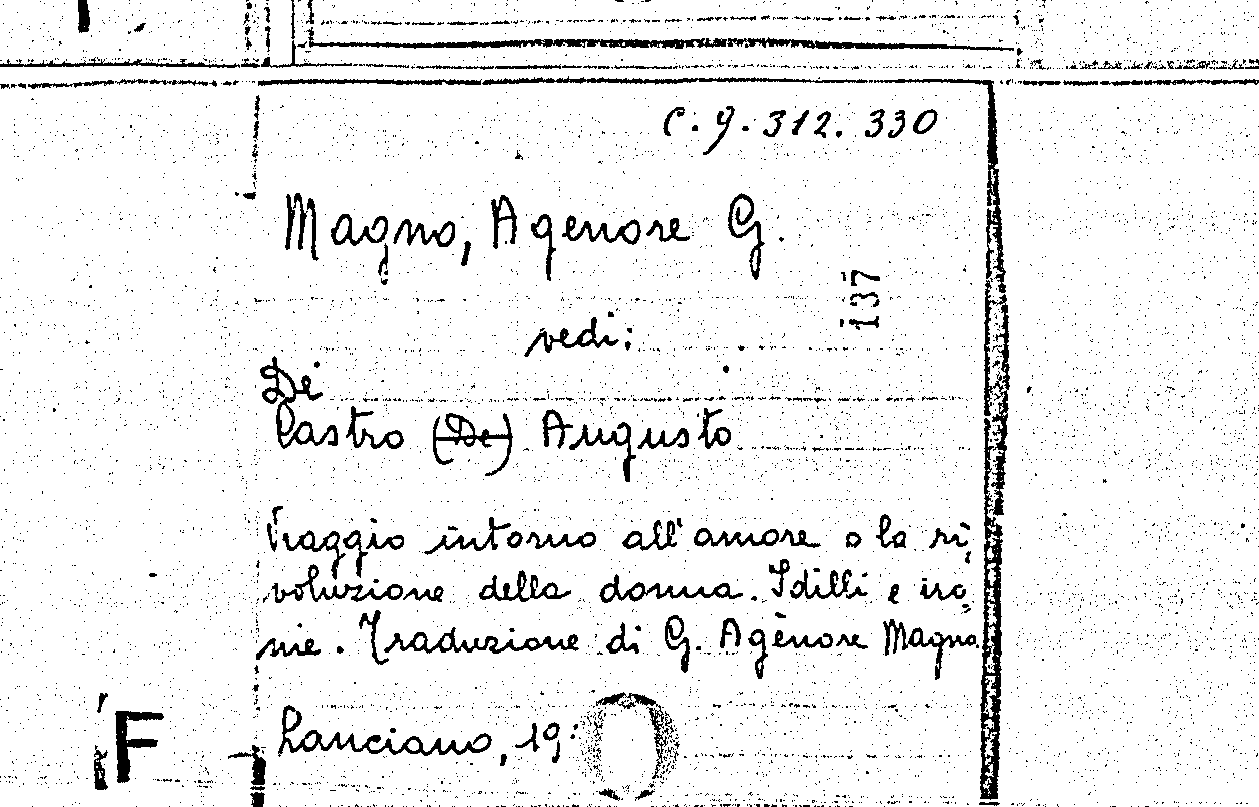 C.9.312.330
Magno, Agenore G.
137
vedi:
De
Castro (De) Augusto
Viaggio intorno all'amore o la ri-
voluzione della donna. Idilli e iro-
nie. Traduzione di G. Agènore Magno
Lanciano, 19
F